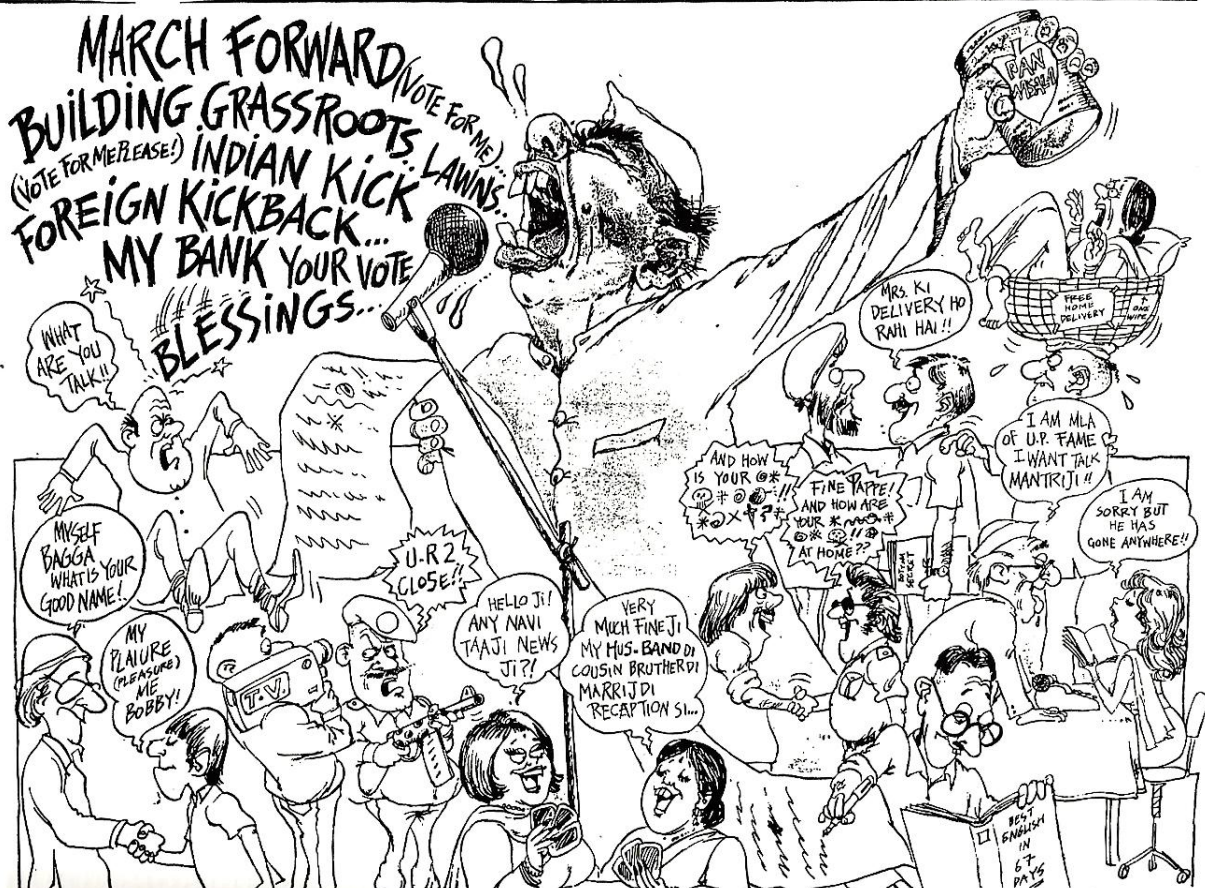 MARCH FORWARD
(VOTE FOR ME)...
BUILDING GRASSROOTS...
LAWNS..
(VOTE FOR ME PLEASE!) INDIAN KICK
FOREIGN KICKBACK...
MY BANK YOUR VOTE
BLESSINGS...
PAN
WHAT
ARE YOU
TALK!!
MRS. KI
DELIVERY HO
RAHI HAI!!
FREE
HOME
DELIVERY
+
ONE
WIPE
I AM MLA
OF U.P. FAME
I WANT TALK
MANTRIJI!!
I AM
SORRY BUT
HE HAS
GONE ANYWHERE!!
AND HOW
IS YOUR @*
FINE PAPPE!
AND HOW ARE
YOUR
AT HOME??
SECRET
MYSELF
BAGGA
WHAT IS YOUR
GOOD NAME!
MY
PLAIURE
(PLEASURE)
ME
BOBBY!
T.V.
U-R 2
CLOSE!!
HELLO JI!
ANY NAVI
TAAJI NEWS
JI?!
VERY
MUCH FINE JI
MY HUS-BAND DI
COUSIN BRUTHER DI
MARRIJ DI
RECAPTION SI...
BEST
ENGLISH
IN
67
DAYS